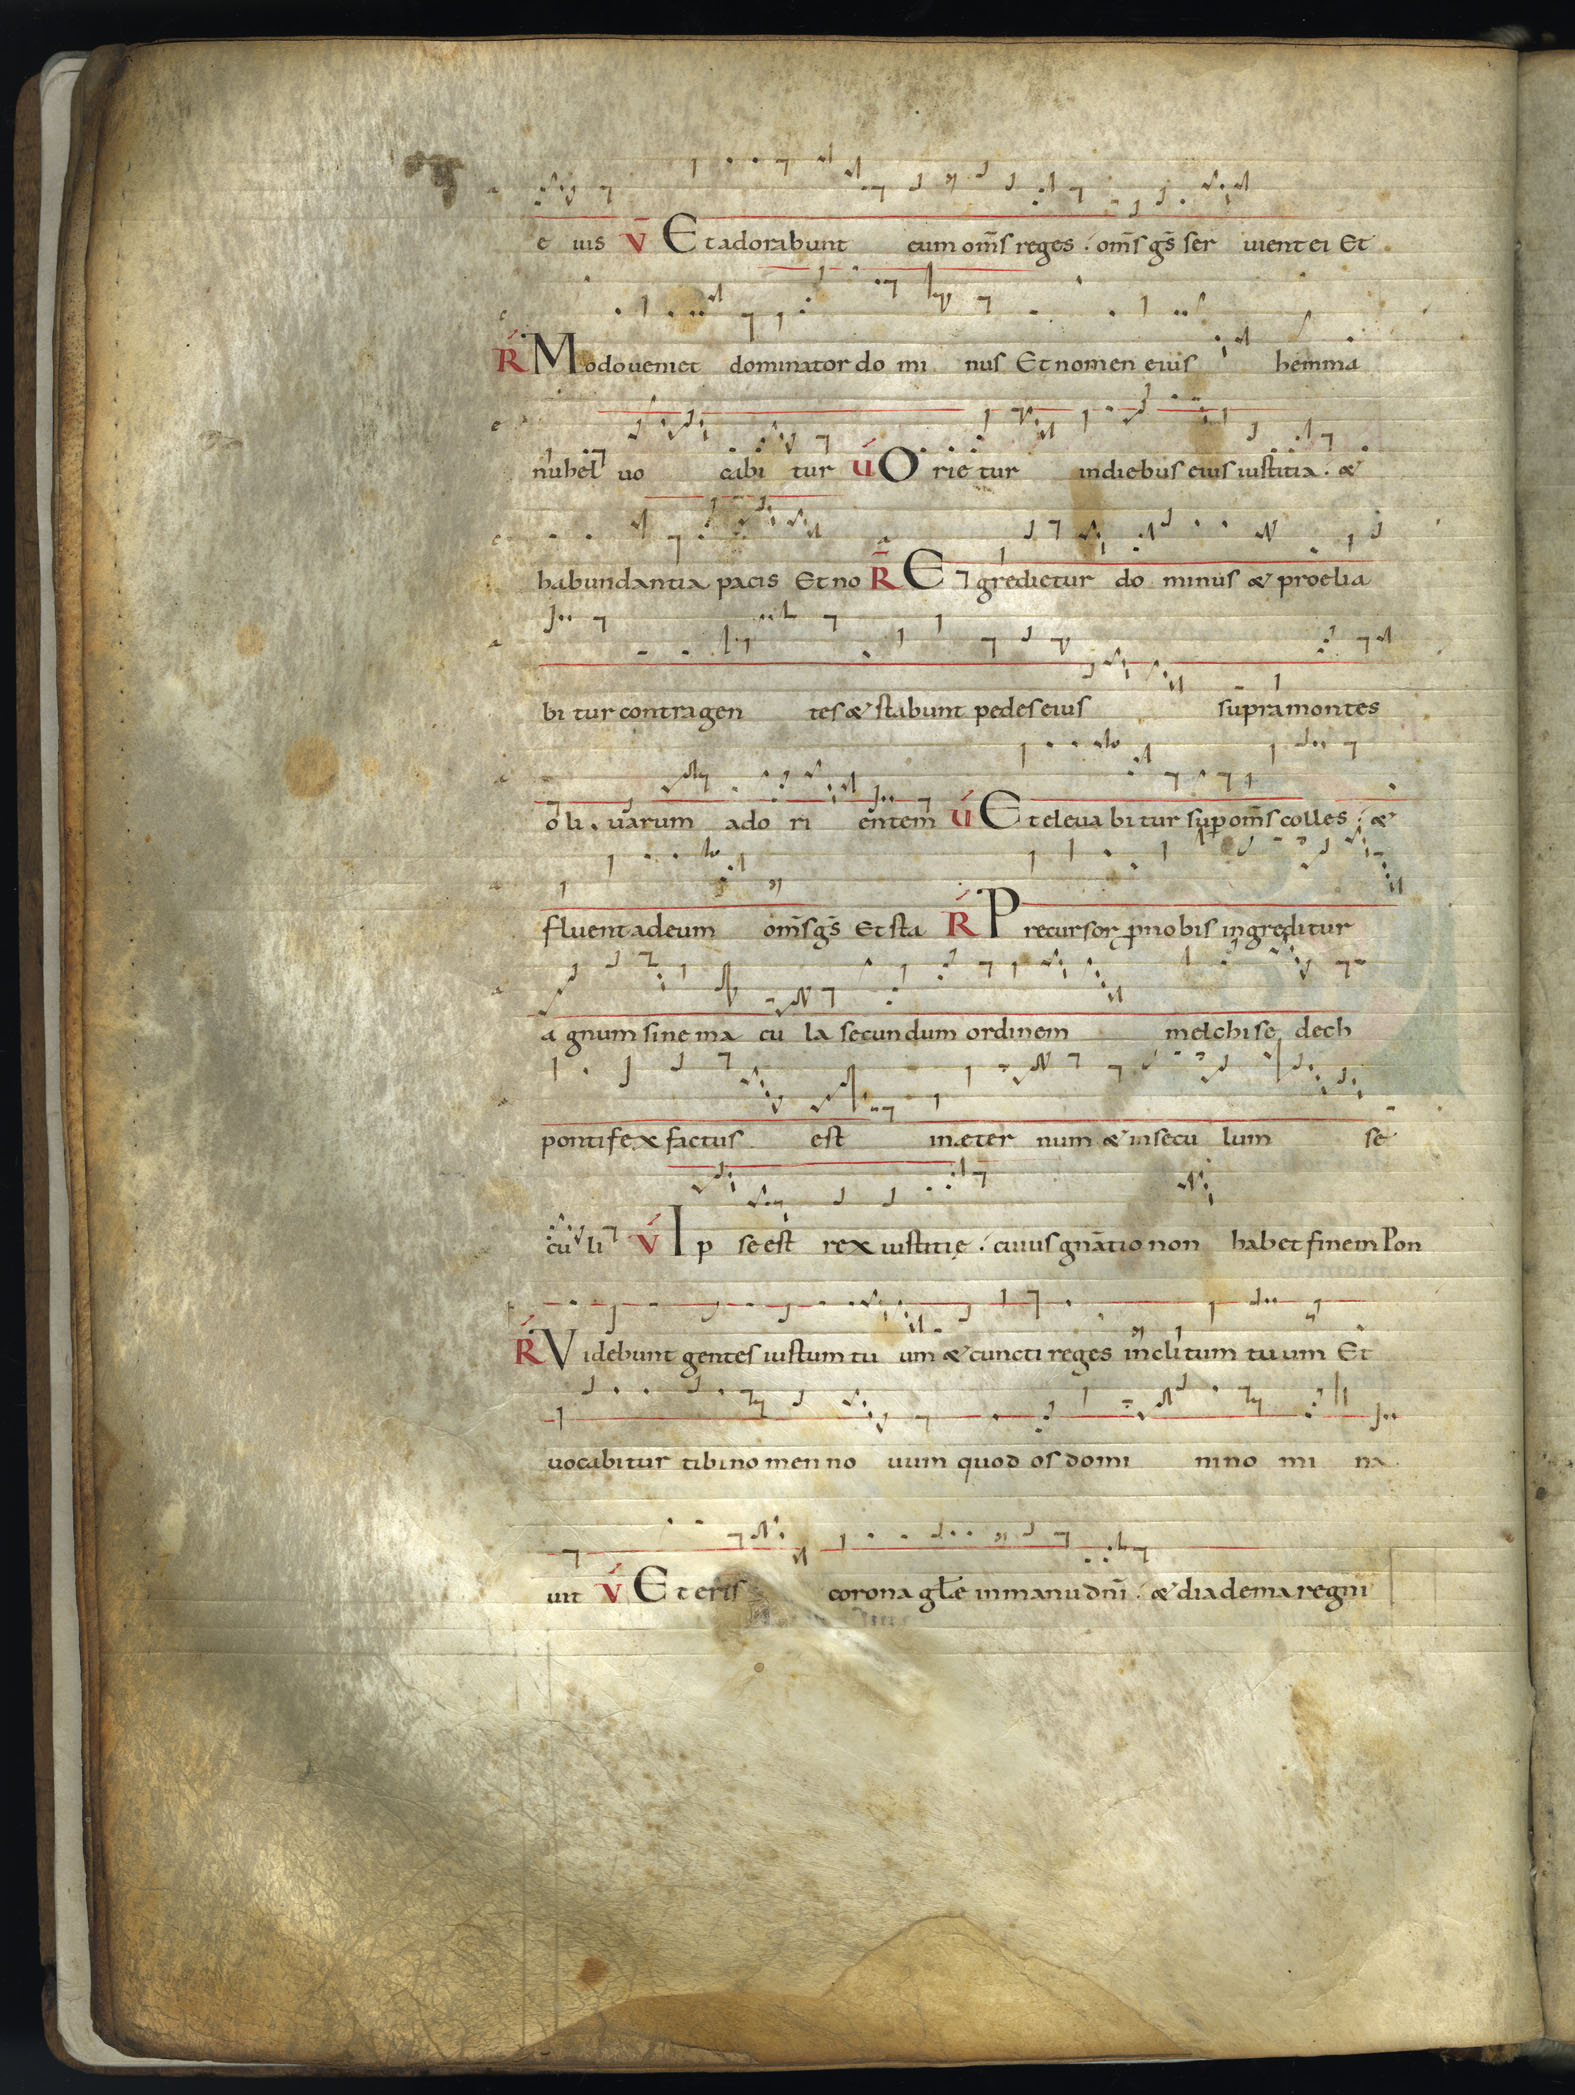 e ius V Et adorabunt eum om̄s reges . om̄s gs̄ ser uient ei Et
R Modo ueniet dominator do mi nus Et nomen eius hemma
nuhel uo cabi tur V O rie tur in diebus eius iustitia . &
habundantia pacis Et no R E gredietur do minus & proelia
bi tur contra gen tes & stabunt pedes eius supra montes
o li uarum ado ri entem V Et eleua bi tur sup om̄s colles . &
fluent ad eum om̄s gs̄ Et sta R P recursor p nobis ingreditur
a gnum sine ma cu la secundum ordinem melchise dech
pontifex factus est in æter num & in secu lum se
cu li V I p se est rex iustitię . cuius gnātio non habet finem Pon
R V idebunt gentes iustum tu um & cuncti reges inclitum tuum Et
uocabitur tibi nomen no uum quod os domi ni no mi na
uit V Et eris corona głe in manu dn̄i . & diadema regni